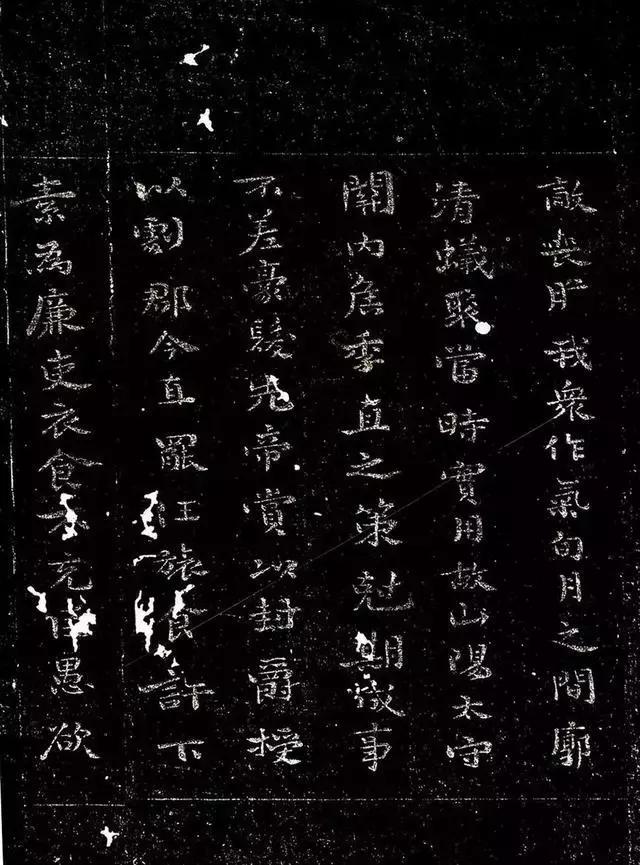 敵喪胆我衆作氣旬月之間廓
清蟻聚當時實用故山陽太守
關內侯季直之策尅期成事
不差豪髮先帝賞以封爵授
以劇郡今直罷任旅食許下
素為廉吏衣食不充臣愚欲